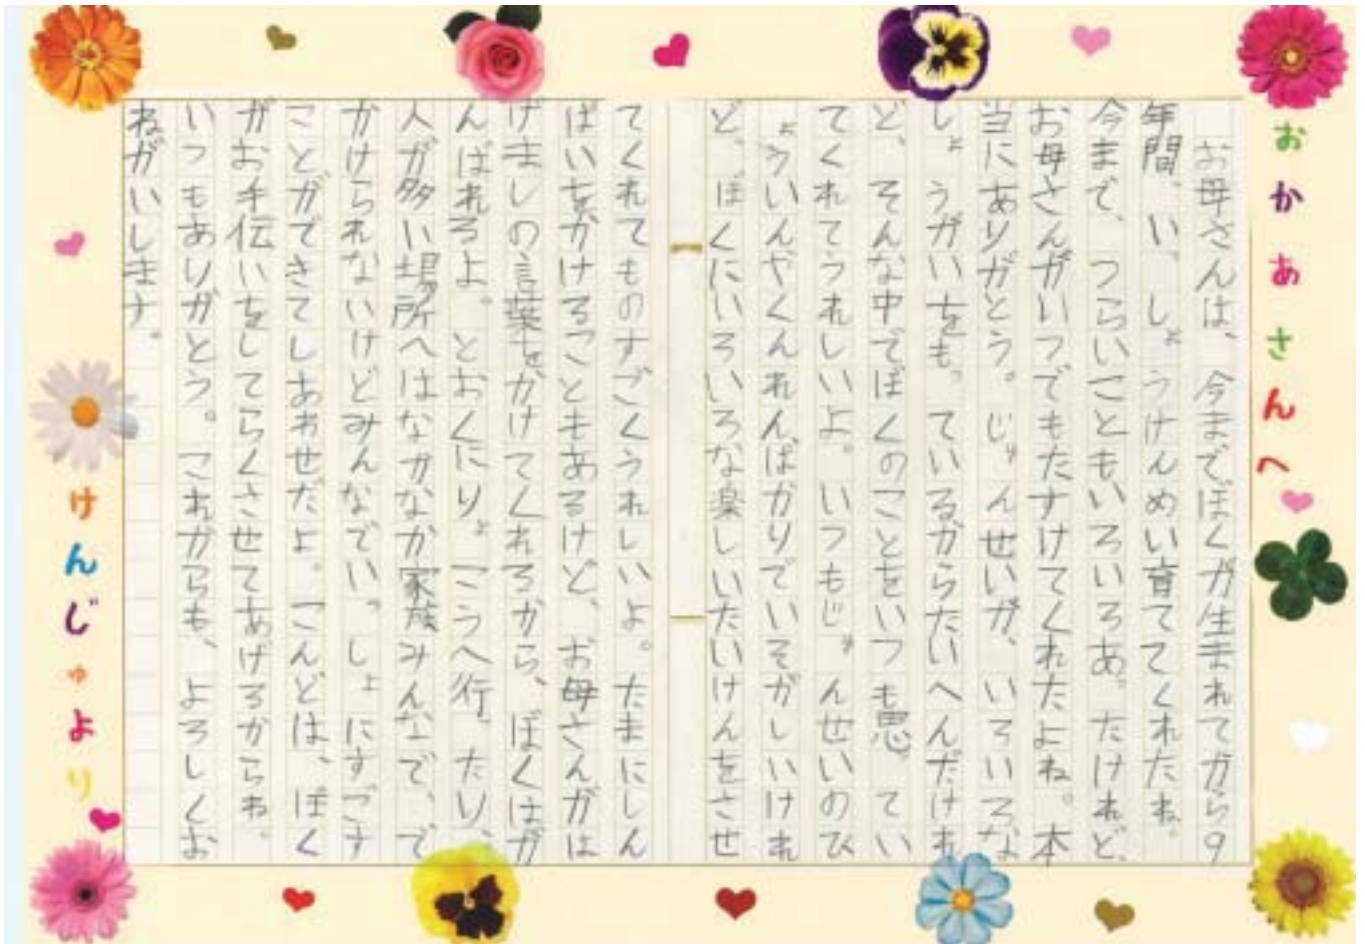 おかあさんへ
お母さんは、今までぼくが生まれてから9
年間、いっしょうけんめい育ててくれたね。
今まで、つらいこともいろいろあったけれど、
お母さんがいつでもたすけてくれたよね。本
当にありがとう。じゅんせいが、いろいろな
しょうがいをもっているからたいへんだけれ
ど、そんな中でぼくのことをいつも思ってい
てくれてうれしいよ。いつもじゅんせいのび
ょういんやくんれんばかりでいそがしいけれ
ど、ぼくにいろいろな楽しいたいけんをさせ
てくれてものすごくうれしいよ。たまにしん
ぱいをかけることもあるけど、お母さんがは
げましの言葉をかけてくれるから、ぼくはが
んばれるよ。とおくにりょこうへ行ったり、
人が多い場所へはなかなか家族みんなで、で
かけられないけどみんなでいっしょにすごす
ことができてしあわせだよ。こんどは、ぼく
がお手伝いをしてらくさせてあげるからね。
いつもありがとう。これからも、よろしくお
ねがいします。
けんじゅより